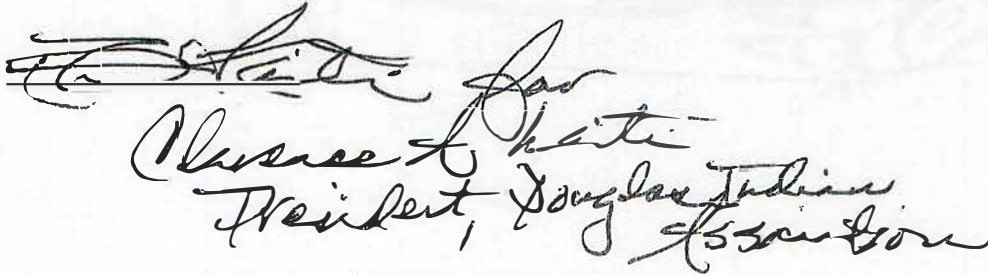 for
Clarence A. Laiti
President, Douglas Indian
Association